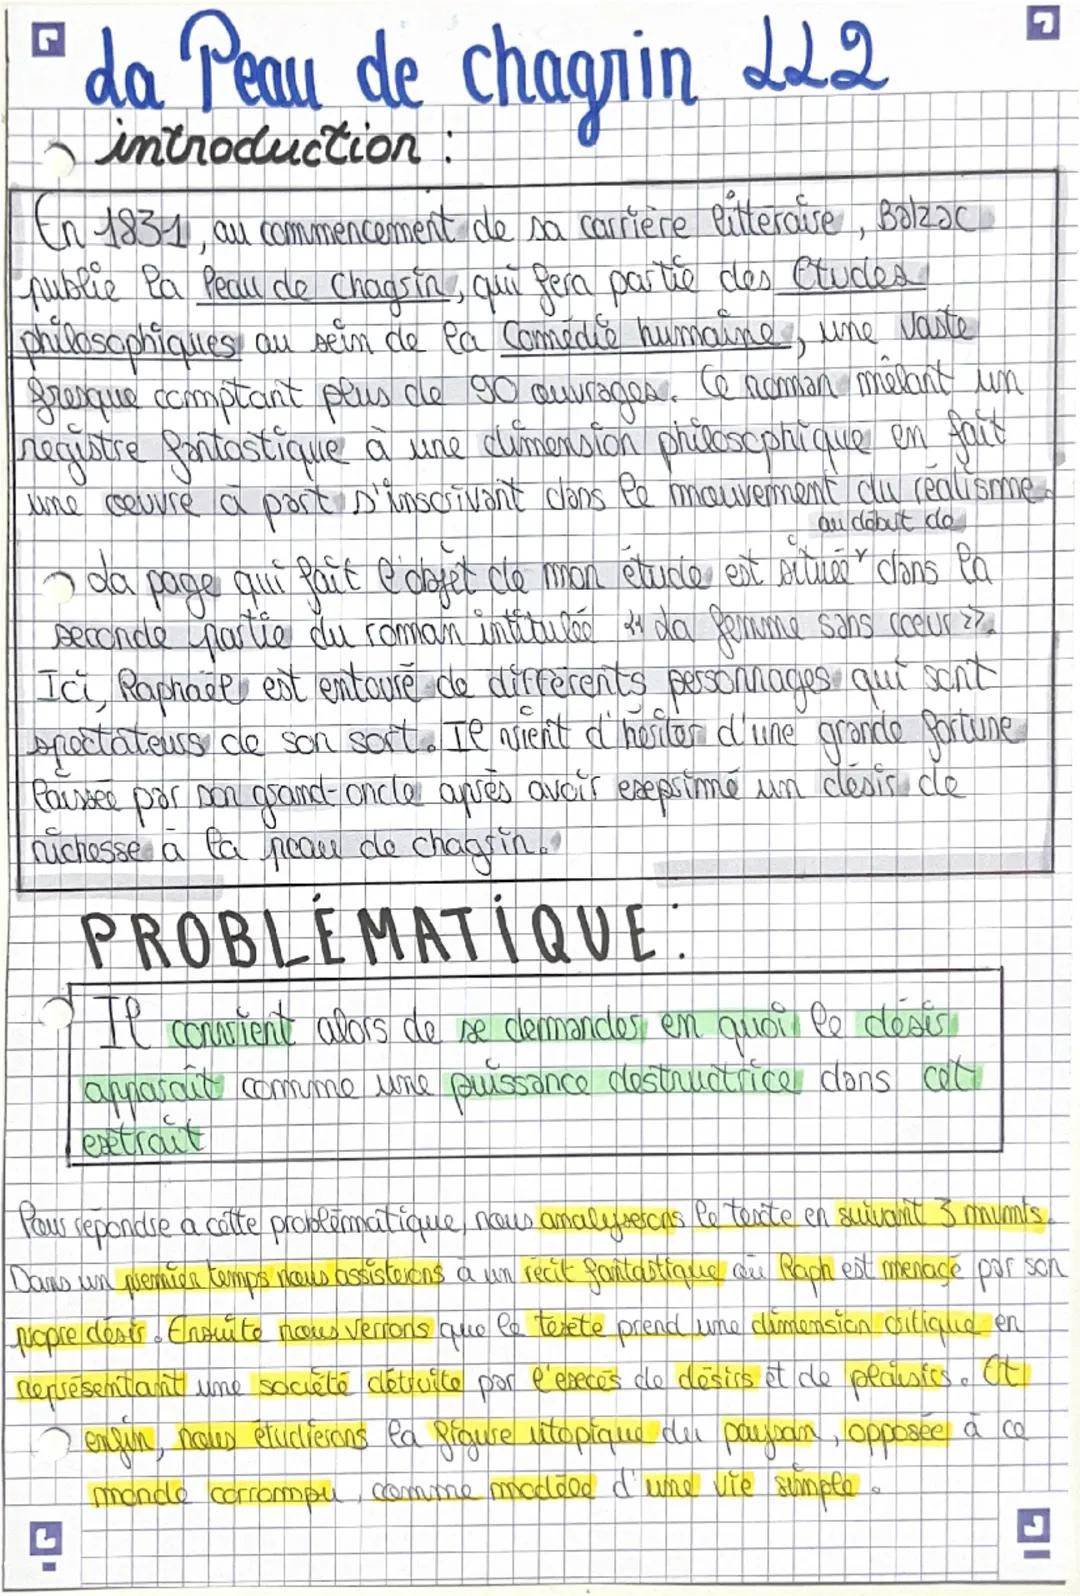 La Peau de chagrin LL2
introduction :
En 1831, au commencement de sa carrière littéraire, Balzac
publie la Peau de Chagrin, qui fera partie des Etudes
philosophiques au sein de la Comédie humaine, une vaste
fresque comptant plus de 90 ouvrages. Ce roman mêlant un
registre fantastique à une dimension philosophique en fait
une œuvre à part s'inscrivant dans le mouvement du réalisme.
au début de
La page qui fait l'objet de mon étude est située dans la
seconde partie du roman intitulée "La femme sans cœur".
Ici, Raphaël est entouré de différents personnages qui sont
spectateurs de son sort. Il vient d'hériter d'une grande fortune
laissée par son grand-oncle après avoir exprimé un désir de
richesse à la peau de chagrin.
PROBLÉMATIQUE :
Il convient alors de se demander en quoi le désir
apparaît comme une puissance destructrice dans cet
extrait
Pour répondre a cette problématique, nous analyserons le texte en suivant 3 mvmts.
Dans un premier temps nous assisterons à un récit fantastique où Raph est menacé par son
propre désir. Ensuite nous verrons que le texte prend une dimension critique en
représentant une société détruite par l'excès de désirs et de plaisirs. Et
enfin, nous étudierons la figure utopique du paysan, opposée à ce
monde corrompu, comme modèle d'une vie simple.